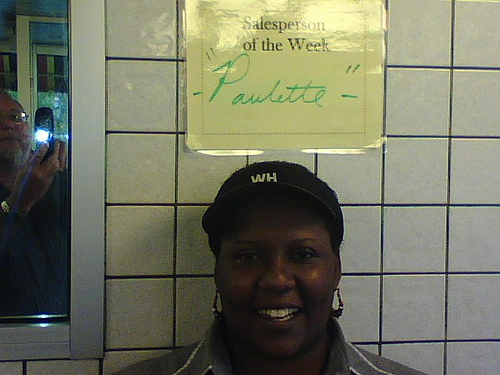 Salesperson
of the Week
" Paulette "
WH